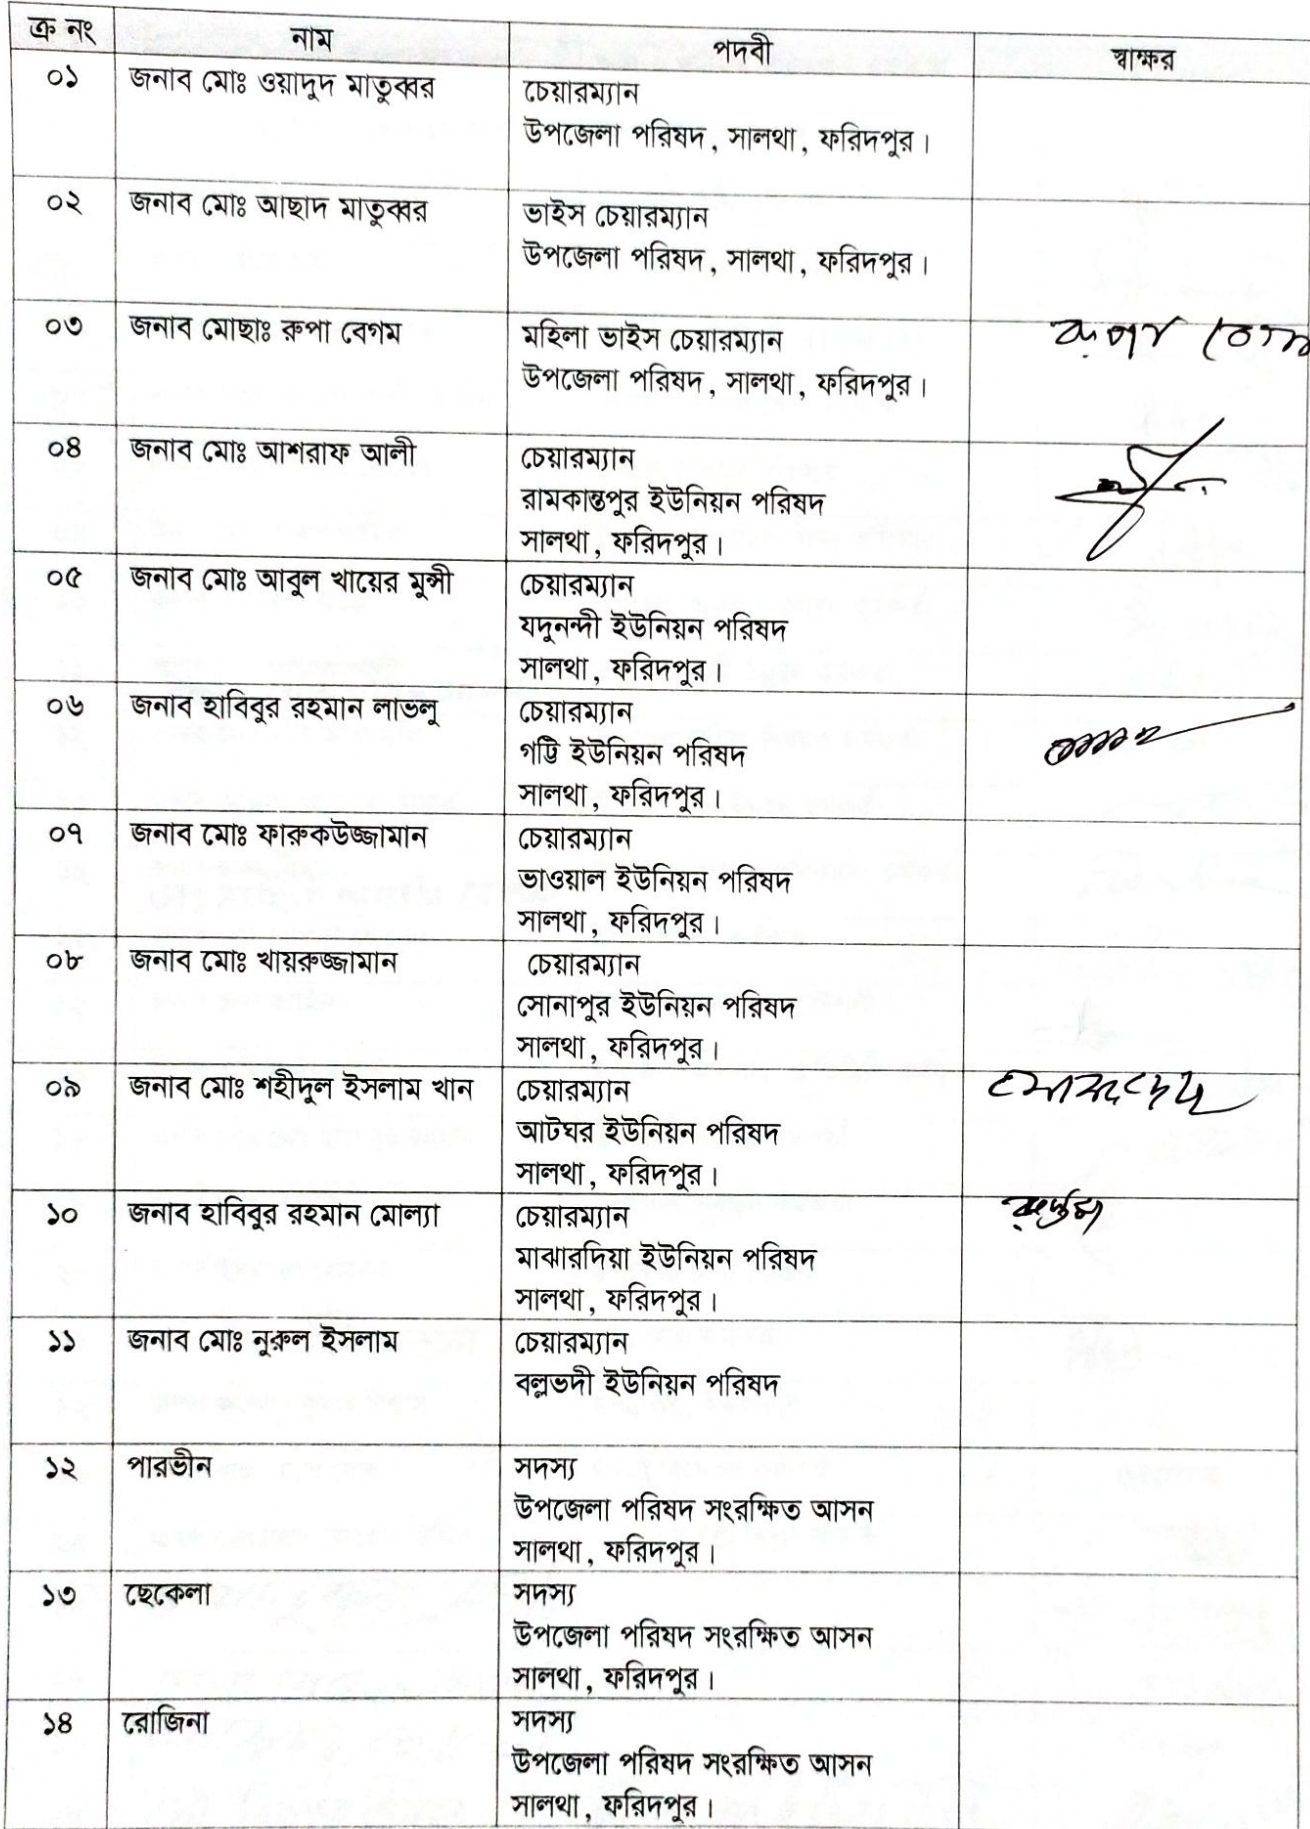 ক্র নং নাম পদবী স্বাক্ষর
০১ জনাব মোঃ ওয়াদুদ মাতুব্বর চেয়ারম্যান
উপজেলা পরিষদ, সালথা, ফরিদপুর।
০২ জনাব মোঃ আছাদ মাতুব্বর ভাইস চেয়ারম্যান
উপজেলা পরিষদ, সালথা, ফরিদপুর।
০৩ জনাব মোছাঃ রুপা বেগম মহিলা ভাইস চেয়ারম্যান
উপজেলা পরিষদ, সালথা, ফরিদপুর।
০৪ জনাব মোঃ আশরাফ আলী চেয়ারম্যান
রামকান্তপুর ইউনিয়ন পরিষদ
সালথা, ফরিদপুর।
০৫ জনাব মোঃ আবুল খায়ের মুন্সী চেয়ারম্যান
যদুনন্দী ইউনিয়ন পরিষদ
সালথা, ফরিদপুর।
০৬ জনাব হাবিবুর রহমান লাভলু চেয়ারম্যান
গট্টি ইউনিয়ন পরিষদ
সালথা, ফরিদপুর।
০৭ জনাব মোঃ ফারুকউজ্জামান চেয়ারম্যান
ভাওয়াল ইউনিয়ন পরিষদ
সালথা, ফরিদপুর।
০৮ জনাব মোঃ খায়রুজ্জামান চেয়ারম্যান
সোনাপুর ইউনিয়ন পরিষদ
সালথা, ফরিদপুর।
০৯ জনাব মোঃ শহীদুল ইসলাম খান চেয়ারম্যান
আটঘর ইউনিয়ন পরিষদ
সালথা, ফরিদপুর।
১০ জনাব হাবিবুর রহমান মোল্যা চেয়ারম্যান
মাঝারদিয়া ইউনিয়ন পরিষদ
সালথা, ফরিদপুর।
১১ জনাব মোঃ নুরুল ইসলাম চেয়ারম্যান
বল্লভদী ইউনিয়ন পরিষদ
১২ পারভীন সদস্য
উপজেলা পরিষদ সংরক্ষিত আসন
সালথা, ফরিদপুর।
১৩ ছেকেলা সদস্য
উপজেলা পরিষদ সংরক্ষিত আসন
সালথা, ফরিদপুর।
১৪ রোজিনা সদস্য
উপজেলা পরিষদ সংরক্ষিত আসন
সালথা, ফরিদপুর।